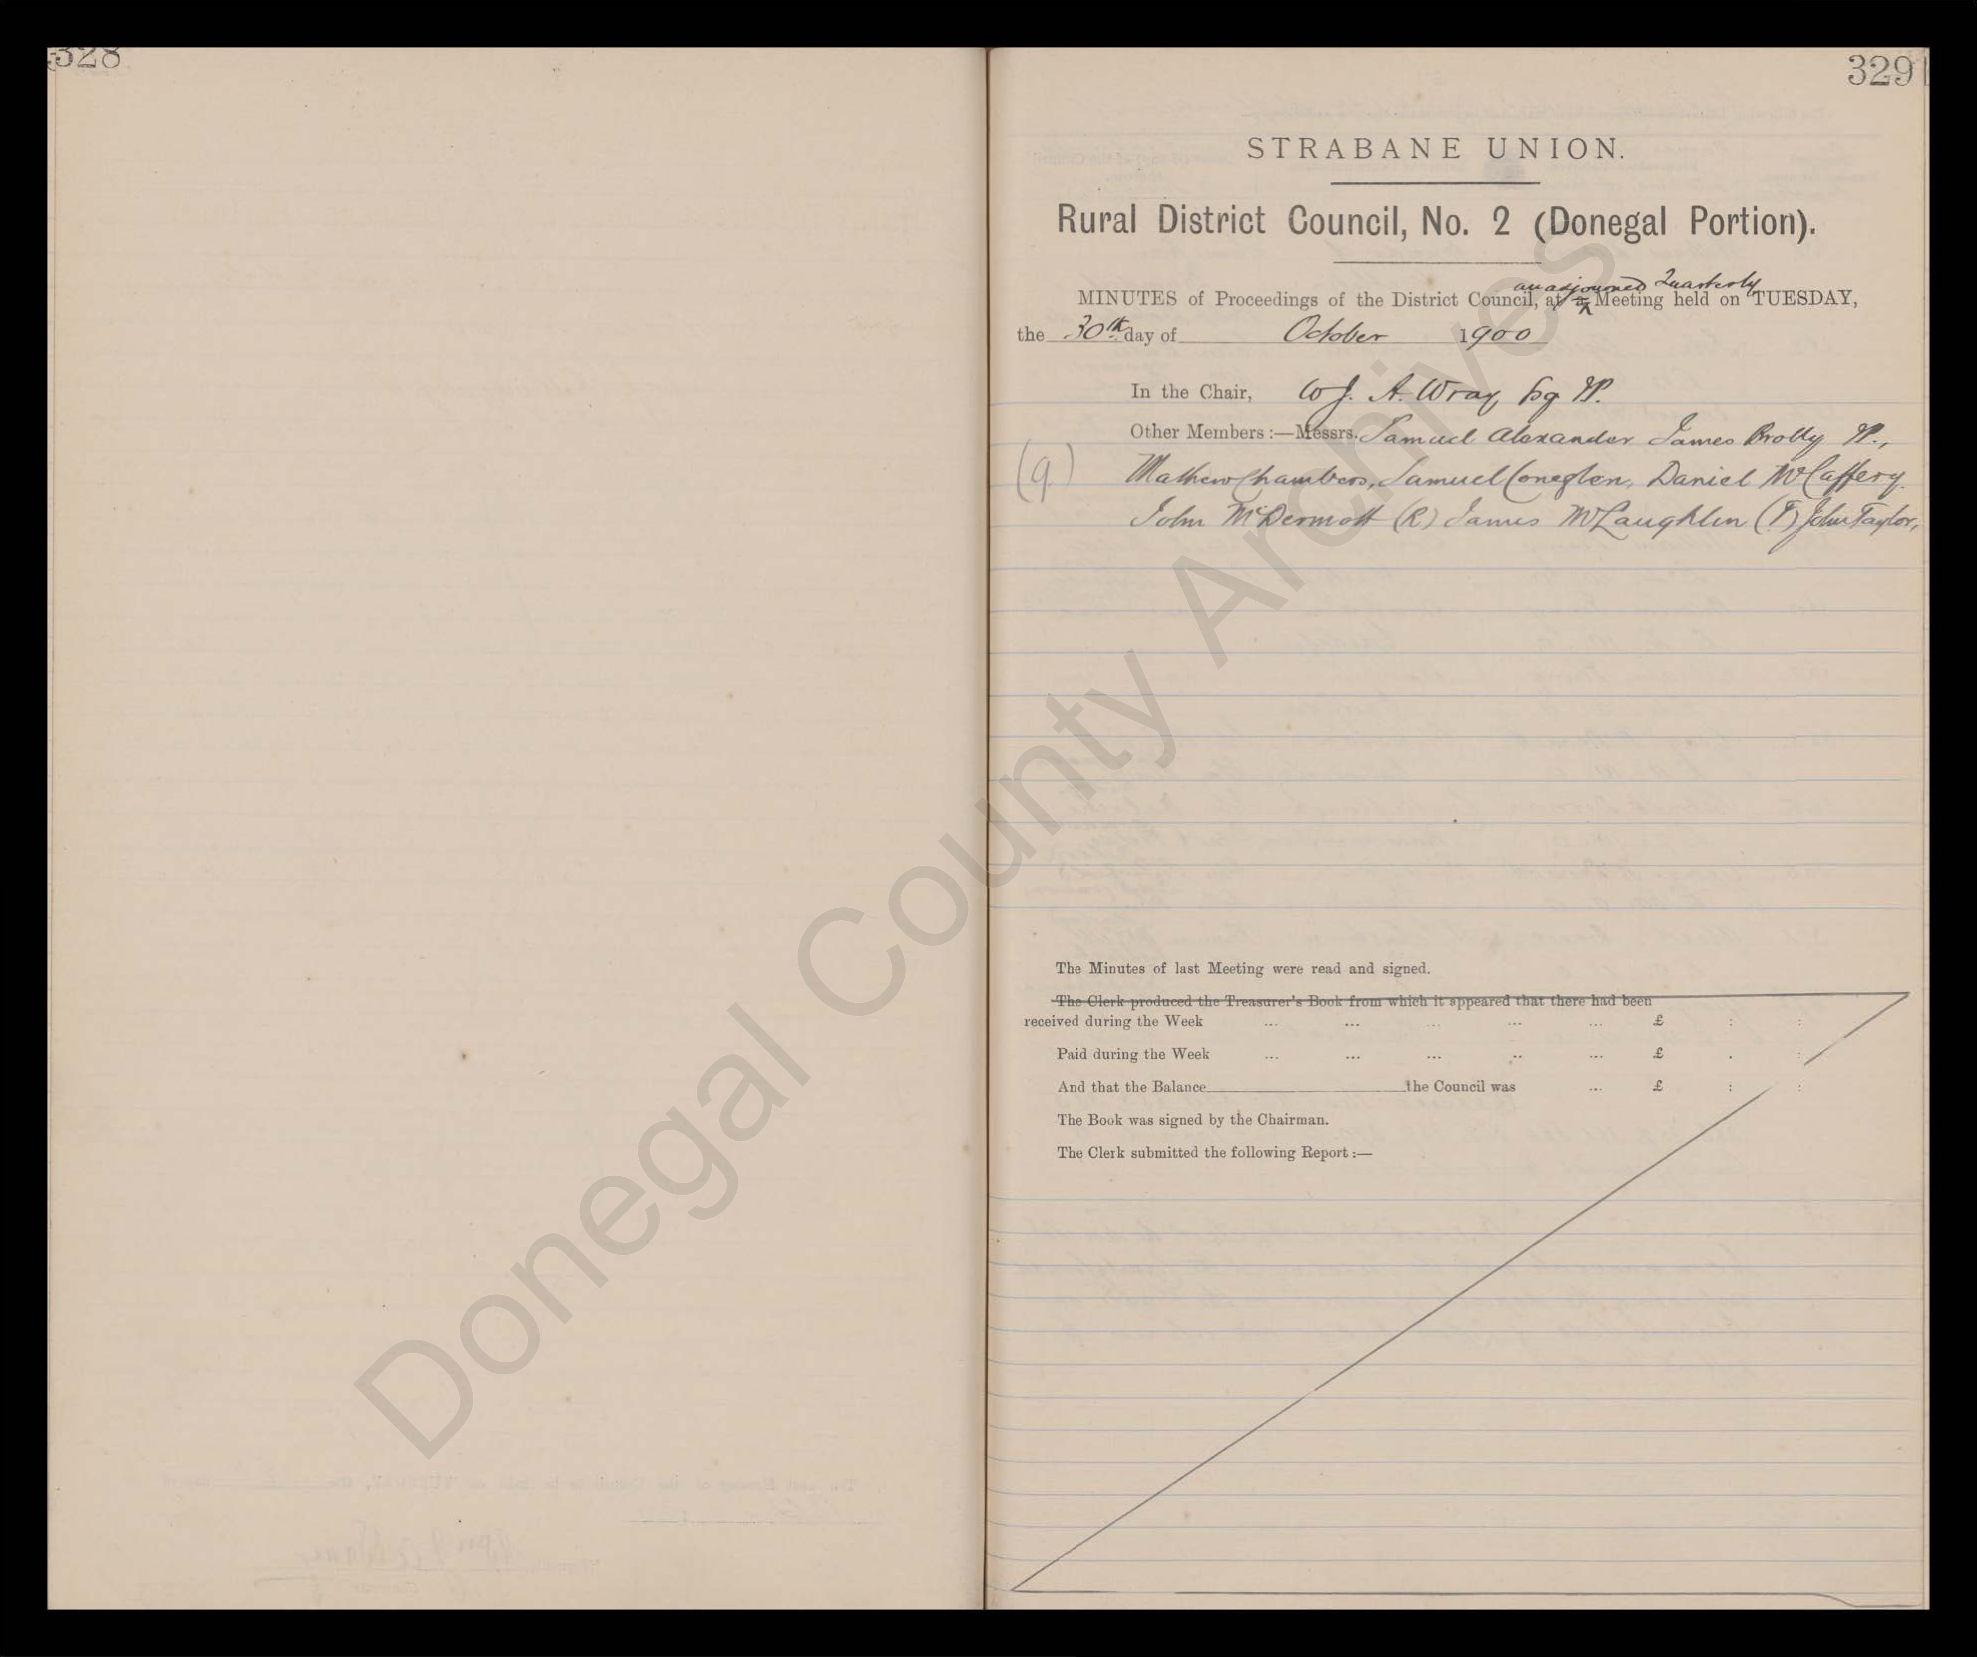 328
329
STRABANE UNION.
Rural District Council, No. 2 (Donegal Portion).
an adjourned Quarterly
MINUTES of Proceedings of the District Council, at a Meeting held on TUESDAY,
the 30th day of October 1900
In the Chair, W J. A. Wray Esq JP.
Other Members :—Messrs. Samuel Alexander James Brolly JP.,
(9) Mathew Chambers, Samuel Coneglen, Daniel McCaffery.
John McDermott (R) James McLaughlin (T) John Taylor,
The Minutes of last Meeting were read and signed.
The Clerk produced the Treasurer's Book from which it appeared that there had been
received during the Week ... ... ... ... ... £ : :
Paid during the Week ... ... ... .. ... £ . :
And that the Balance the Council was ... £ : :
The Book was signed by the Chairman.
The Clerk submitted the following Report :—
Donegal County Archives